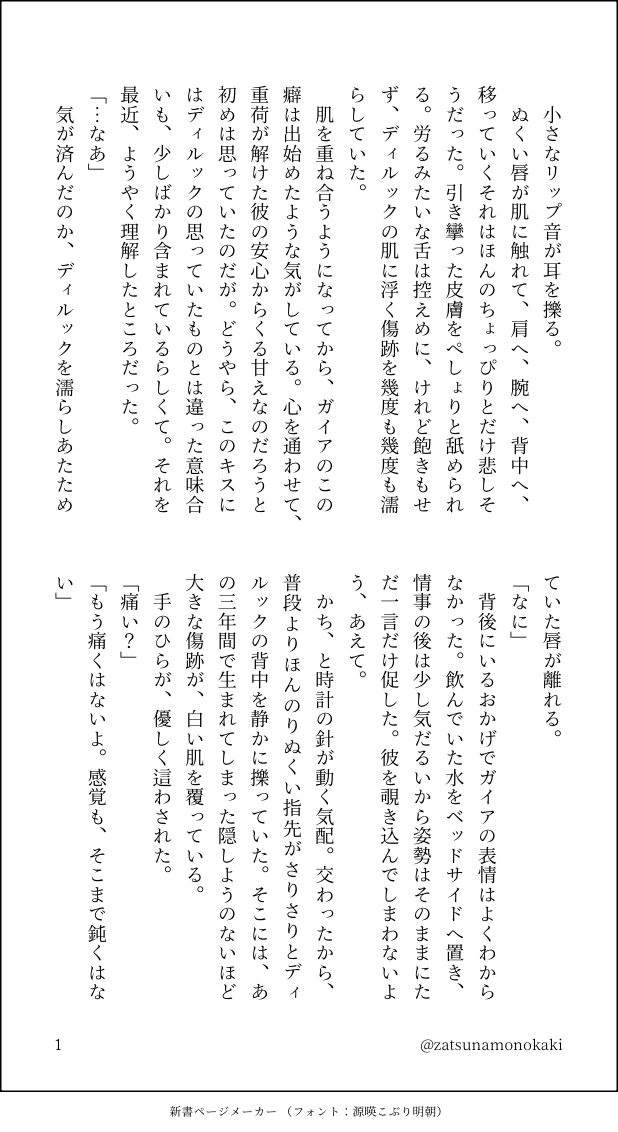 小さなリップ音が耳を擽る。
　ぬくい唇が肌に触れて、肩へ、腕へ、背中へ、
移っていくそれはほんのちょっぴりとだけ悲しそ
うだった。引き攣った皮膚をぺしょりと舐められ
る。労るみたいな舌は控えめに、けれど飽きもせ
ず、ディルックの肌に浮く傷跡を幾度も幾度も濡
らしていた。
　肌を重ね合うようになってから、ガイアのこの
癖は出始めたような気がしている。心を通わせて、
重荷が解けた彼の安心からくる甘えなのだろうと
初めは思っていたのだが。どうやら、このキスに
はディルックの思っていたものとは違った意味合
いも、少しばかり含まれているらしくて。それを
最近、ようやく理解したところだった。
「…なあ」
　気が済んだのか、ディルックを濡らしあたため
ていた唇が離れる。
「なに」
　背後にいるおかげでガイアの表情はよくわから
なかった。飲んでいた水をベッドサイドへ置き、
情事の後は少し気だるいから姿勢はそのままにた
だ一言だけ促した。彼を覗き込んでしまわないよ
う、あえて。
　かち、と時計の針が動く気配。交わったから、
普段よりほんのりぬくい指先がさりさりとディ
ルックの背中を静かに擽っていた。そこには、あ
の三年間で生まれてしまった隠しようのないほど
大きな傷跡が、白い肌を覆っている。
　手のひらが、優しく這わされた。
「痛い？」
「もう痛くはないよ。感覚も、そこまで鈍くはな
い」
1
@zatsunamonokaki
新書ページメーカー（フォント：源暎こぶり明朝）